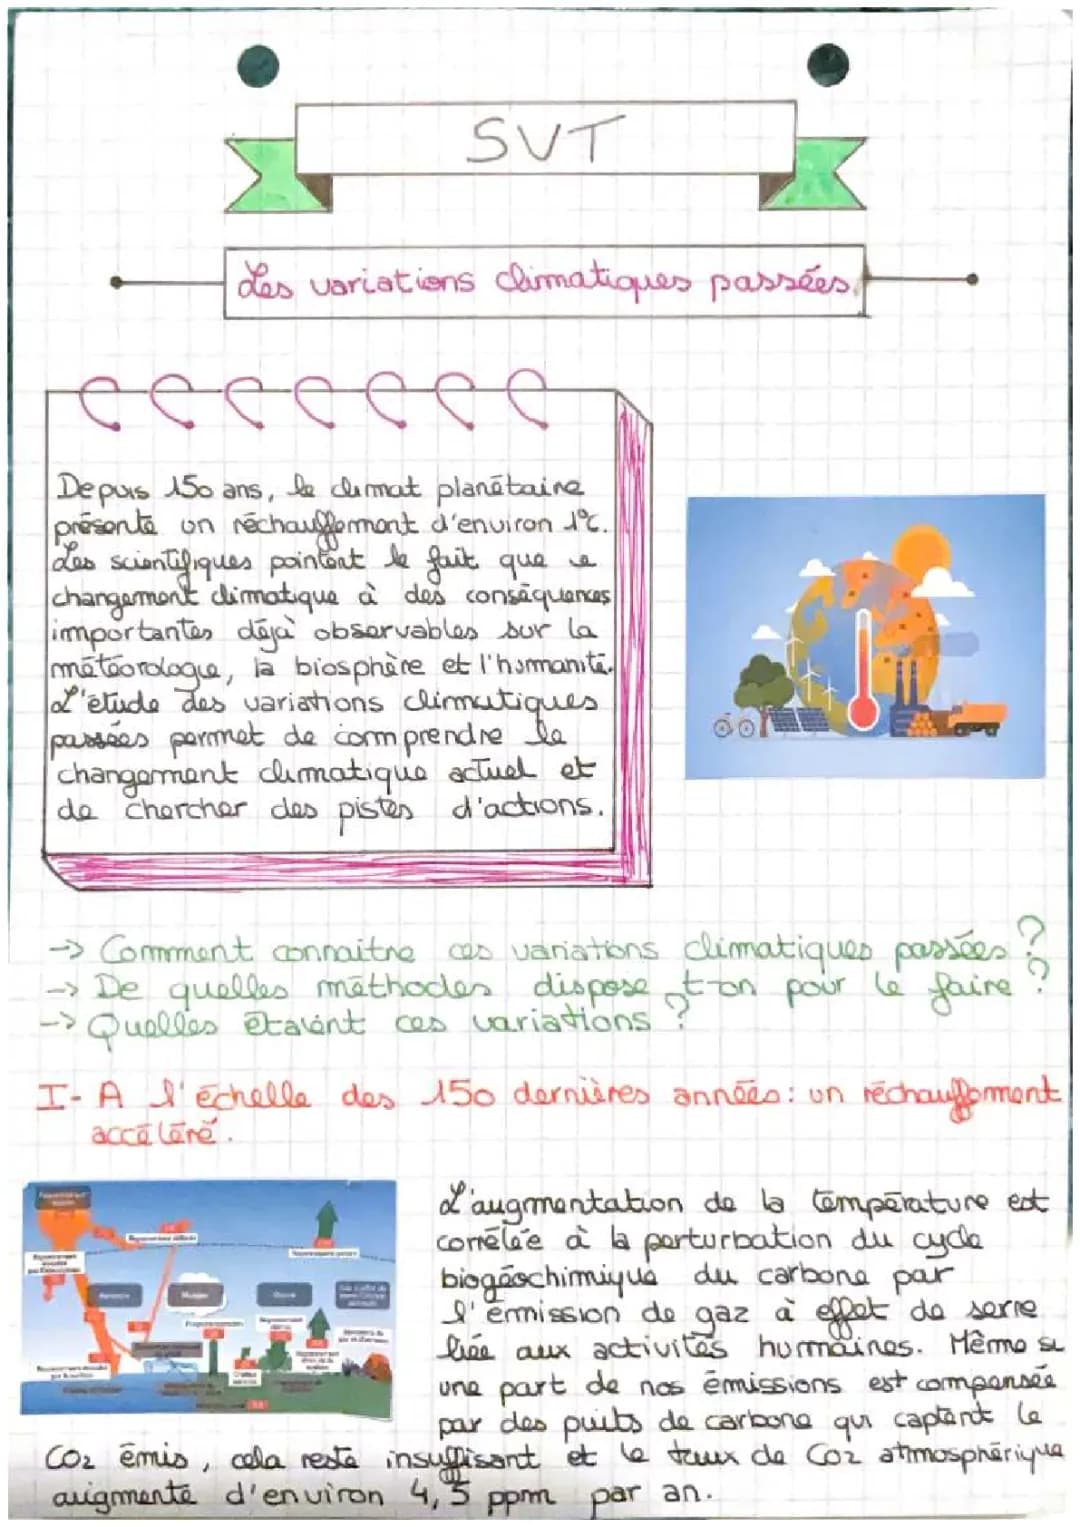 SVT
Les variations climatiques passées
Depuis 150 ans, le climat planétaire
présente un réchauffement d'environ 1°C.
Les scientifiques pointent le fait que
changement climatique à des conséquences
importantes déjà observables sur la
météorologie, la biosphère et l'humanité.
L'étude des variations climatiques
passées permet de comprendre le
changement climatique actuel et
de chercher des pistes d'actions.
-> Comment connaitre ces variations climatiques passées ?
-> De quelles méthodes dispose t-on pour le faire ?
-> Quelles étaient ces variations ?
I- A l'échelle des 150 dernières années : un réchauffement
accéléré.
L'augmentation de la température est
corrélée à la perturbation du cycle
biogéochimique du carbone par
l'émission de gaz à effet de serre
liée aux activités humaines. Même si
une part de nos émissions est compensée
par des puits de carbone qui captent le
CO2 émis, cela reste insuffisant et le taux de CO2 atmosphérique
augmente d'environ 4,5 ppm par an.